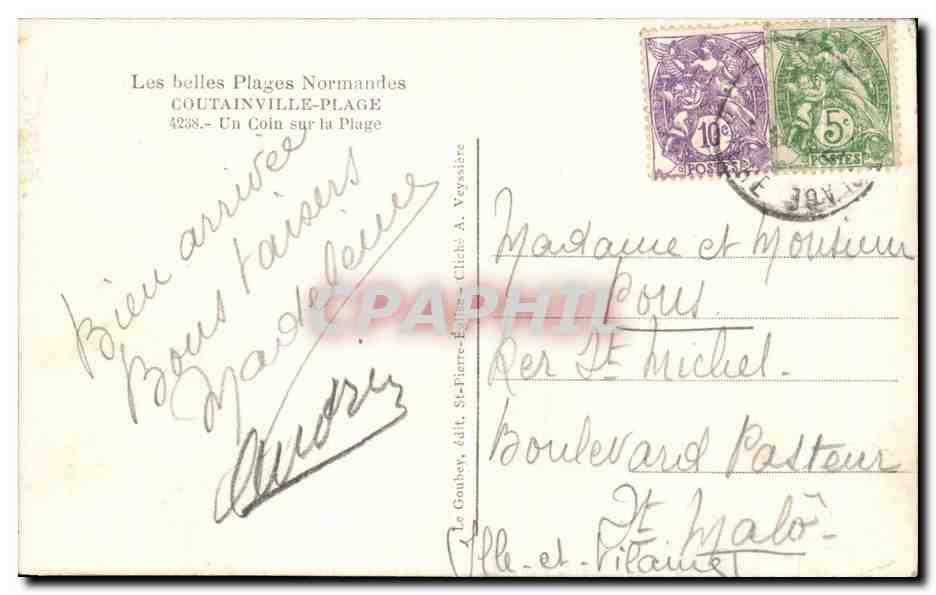 Les belles Plages Normandes
COUTAINVILLE-PLAGE
4238.- Un Coin sur la Plage
Bien arrivée
Bons baisers
Madeleine
André
Le Goubey, édit, St-Pierre-Eglise - Cliché A. Veyssière
10c
POSTES
5c
POSTES
Madame et Monsieur
Pons.
Rer St Michel.
Boulevard Pasteur
St Malô.
(Ille-et-Vilaine)
CPAPHIL